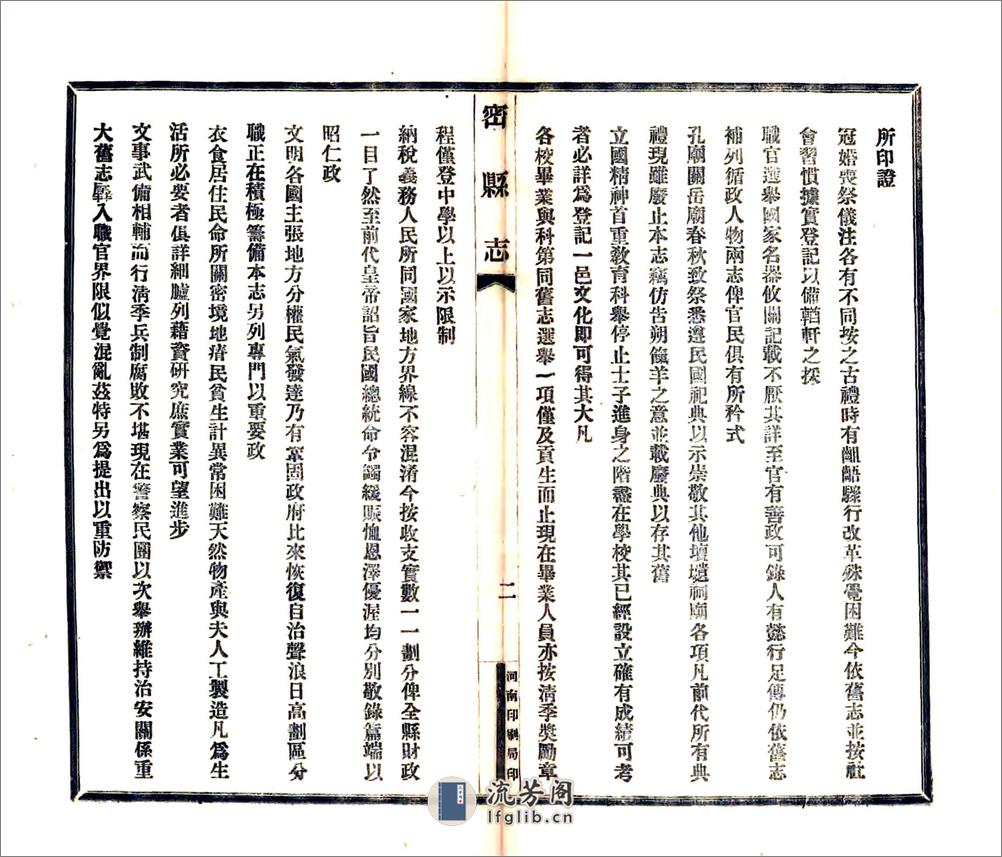 所印證
冠婚喪祭儀注各有不同按之古禮時有齟齬驟行改革殊覺困難今依舊志並按社
會習慣據實登記以備輶軒之採
職官選舉國家名器攸關記載不厭其詳至官有善政可錄人有懿行足傳仍依舊志
補列循政人物兩志俾官民俱有所矜式
孔廟關岳廟春秋致祭悉遵民國祀典以示崇敬其他壇壝祠廟各項凡前代所有典
禮現雖廢止本志竊仿告朔餼羊之意並載廢典以存其舊
立國精神首重教育科舉停止士子進身之階盡在學校其已經設立確有成績可考
者必詳為登記一邑文化即可得其大凡
各校畢業與科第同舊志選舉一項僅及貢生而止現在畢業人員亦按清季獎勵章
密縣志
二
河南印刷局印
程僅登中學以上以示限制
納稅義務人民所同國家地方界線不容混淆今按收支實數一一劃分俾全縣財政
一目了然至前代皇帝詔旨民國總統命令蠲緩賑恤恩澤優渥均分別敬錄篇端以
昭仁政
文明各國主張地方分權民氣發達乃有鞏固政府比來恢復自治聲浪日高劃區分
職正在積極籌備本志另列專門以重要政
衣食居住民命所關密境地瘠民貧生計異常困難天然物產與夫人工製造凡為生
活所必要者俱詳細臚列藉資研究庶實業可望進步
文事武備相輔而行清季兵制腐敗不堪現在警察民團以次舉辦維持治安關係重
大舊志羼入職官界限似覺混亂茲特另為提出以重防禦
流芳閣
lfglib.cn